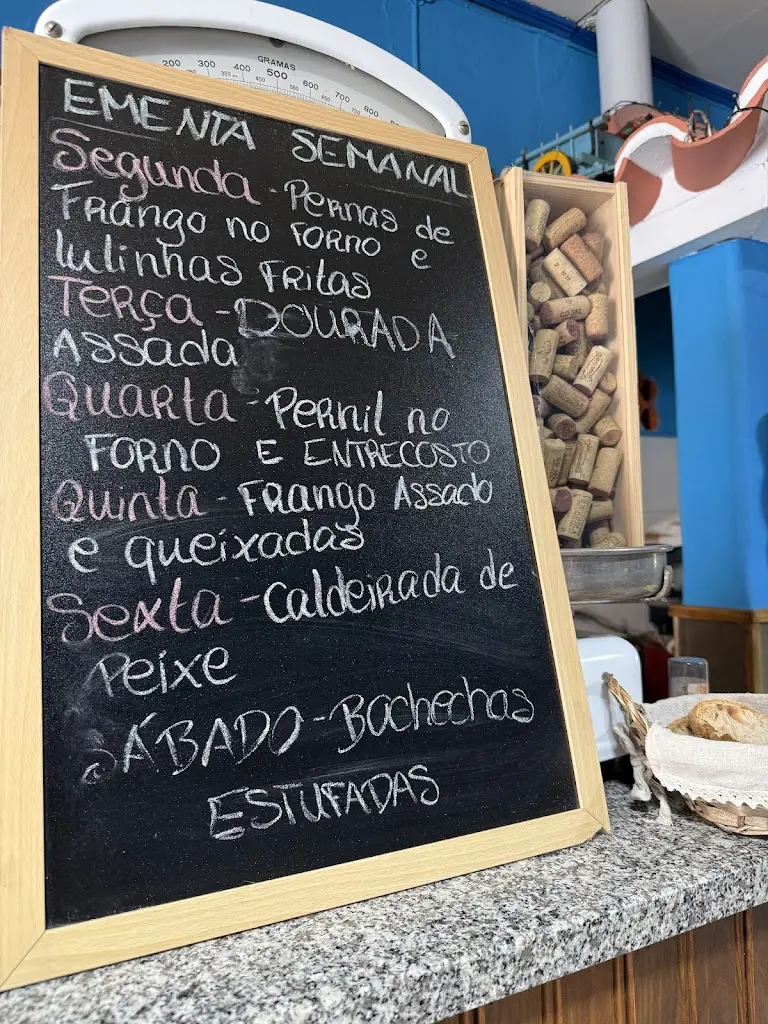 GRAMAS
200 300 400 500 600 700 800
EMENTA SEMANAL
Segunda - Pernas de
Frango no Forno e
lulinhas Fritas
Terça - DOURADA
Assada
Quarta - Pernil no
FORNO E ENTRECOSTO
Quinta - Frango Assado
e queixadas
Sexta - Caldeirada de
Peixe
SÁBADO - Bochechas
ESTUFADAS